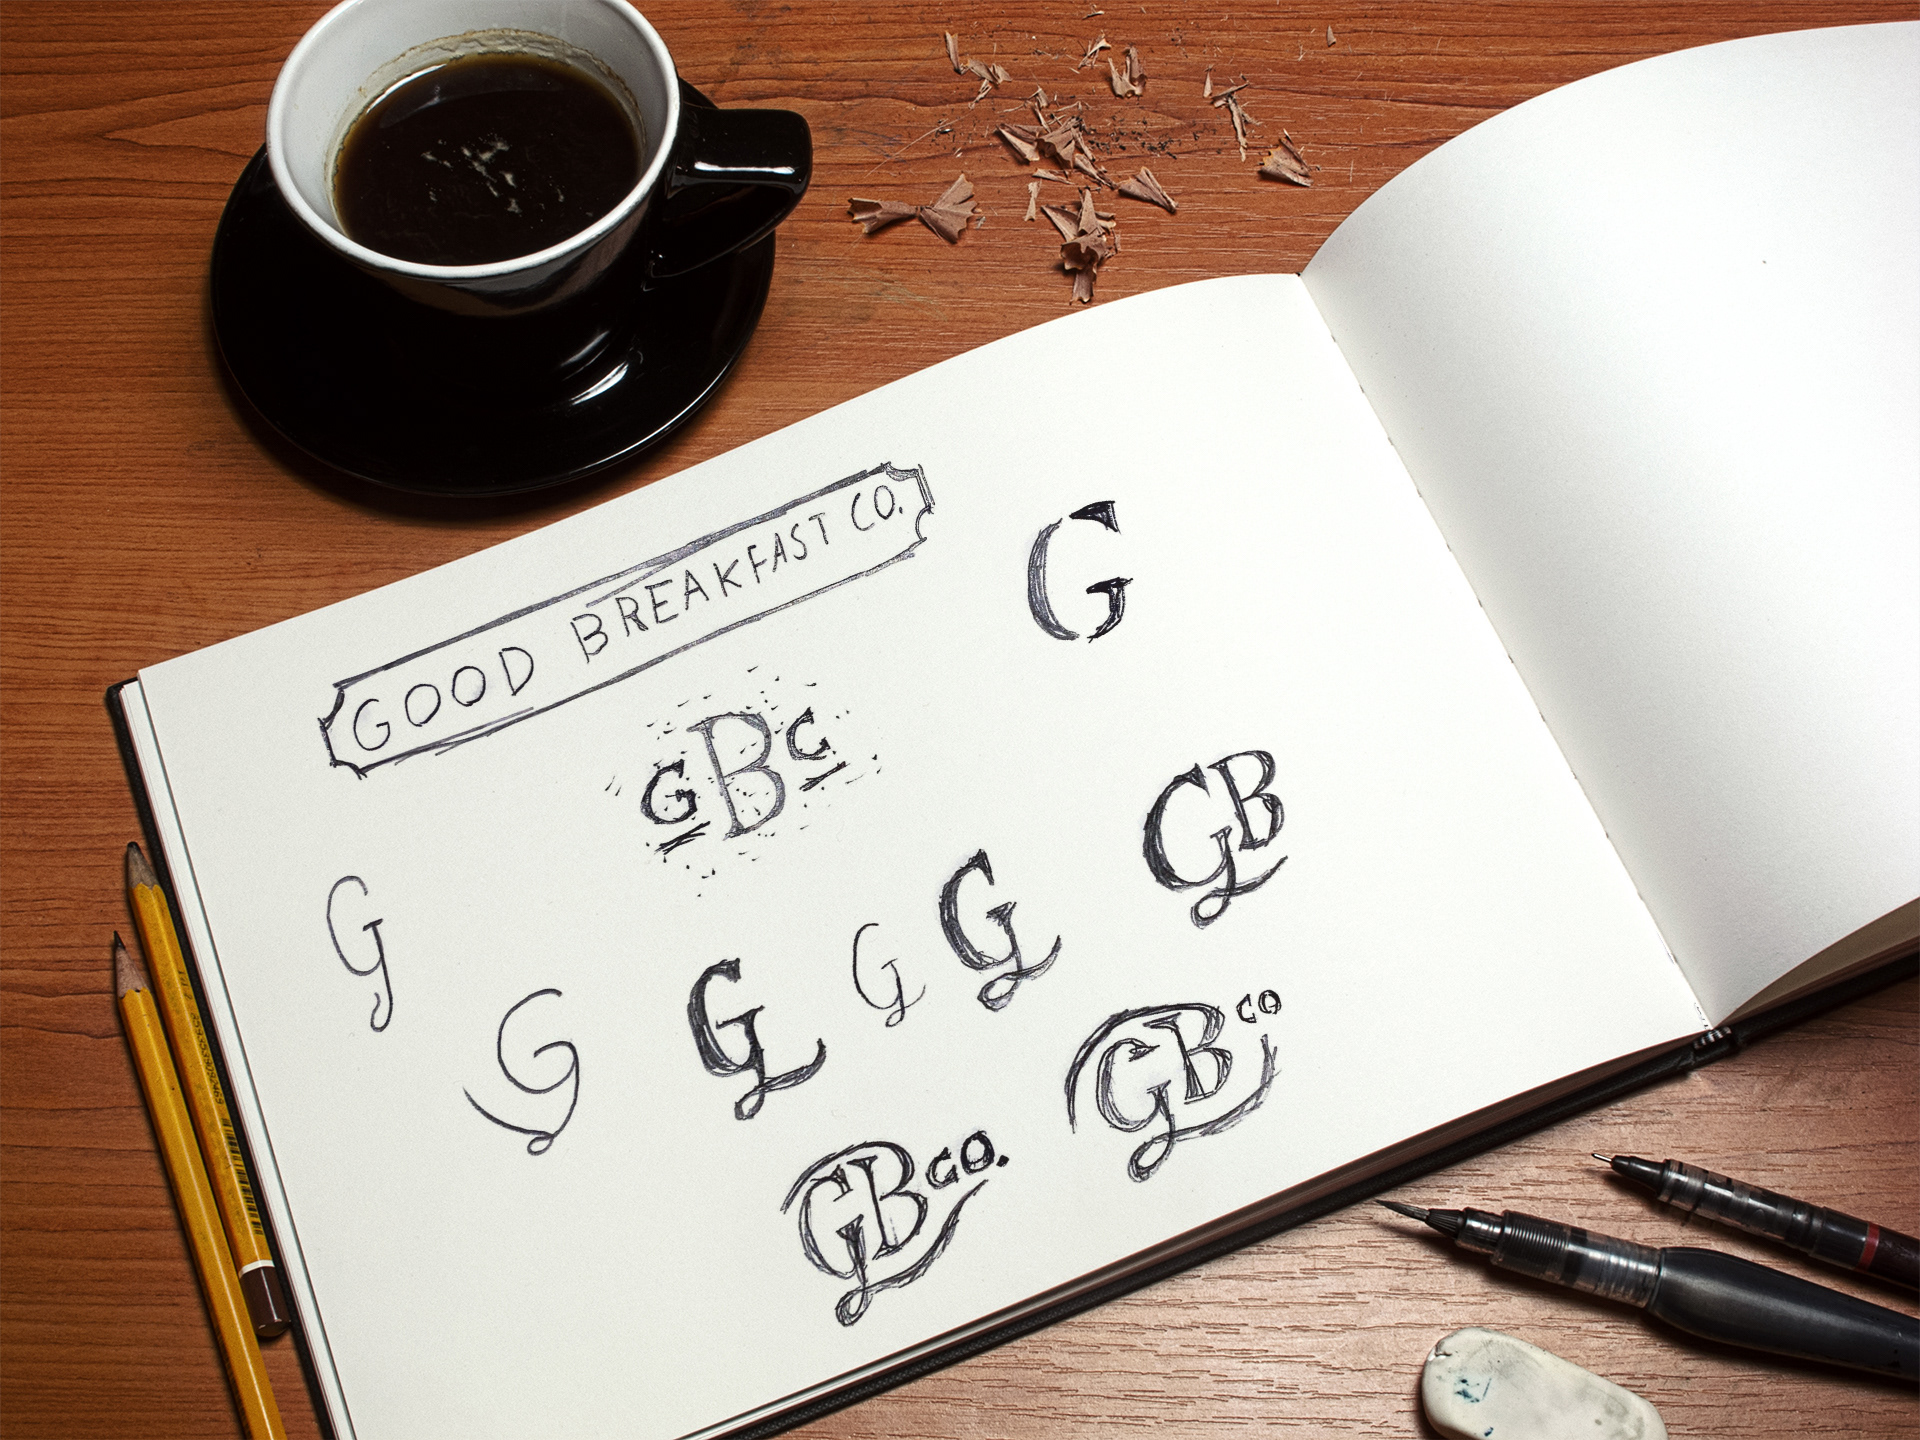 GOOD BREAKFAST CO.
G
GBC
GB
G
G
G
G
G
GB CO
GB CO.